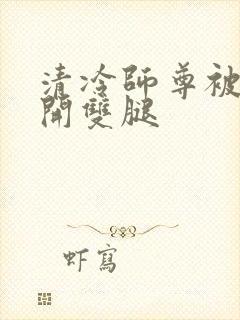 清冷師尊被
開雙腿
虾寫